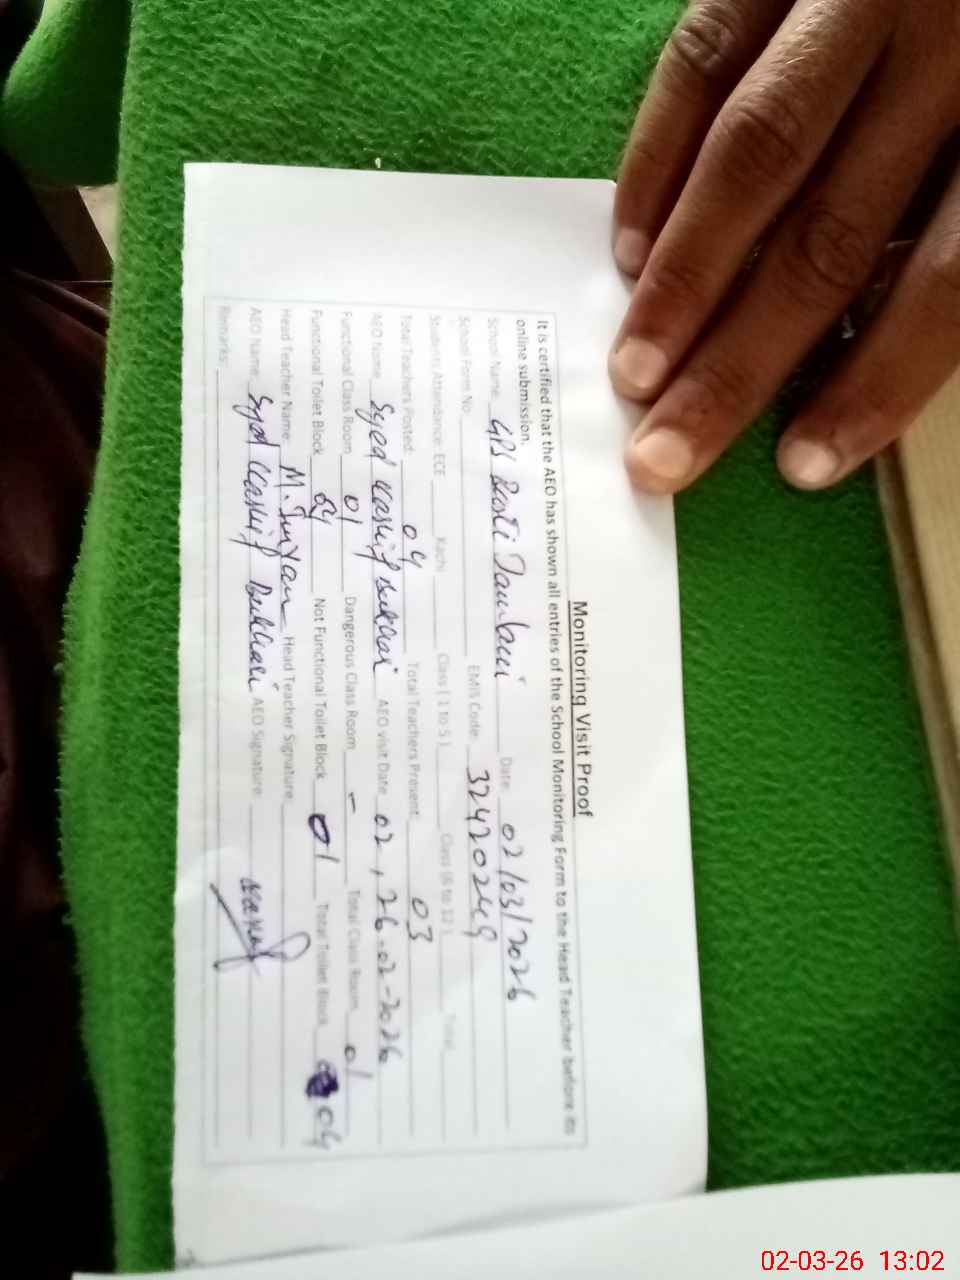 Monitoring Visit Proof
It is certified that the AEO has shown all entries of the School Monitoring Form to the Head Teacher before its
online submission.
School Name: GPS Basti Date: 02/03/2026
School Form No. EMIS Code: 32420249
Student Attendance: ECE Kachi Class ( 1 to 5 ) Class (6 to 12 ) Total
Total Teachers Posted: 04 Total Teachers Present: 03
AEO Name: Syed Kashif Bukhari AEO visit Date 02, 26-02-2026
Functional Class Room 01 Dangerous Class Room - Total Class Room 01
Functional Toilet Block Not Functional Toilet Block 01 Total Toilet Block 04
Head Teacher Name: M. Head Teacher Signature:
AEO Name: Syed Kashif Bukhari AEO Signature:
Remarks:
02-03-26 13:02